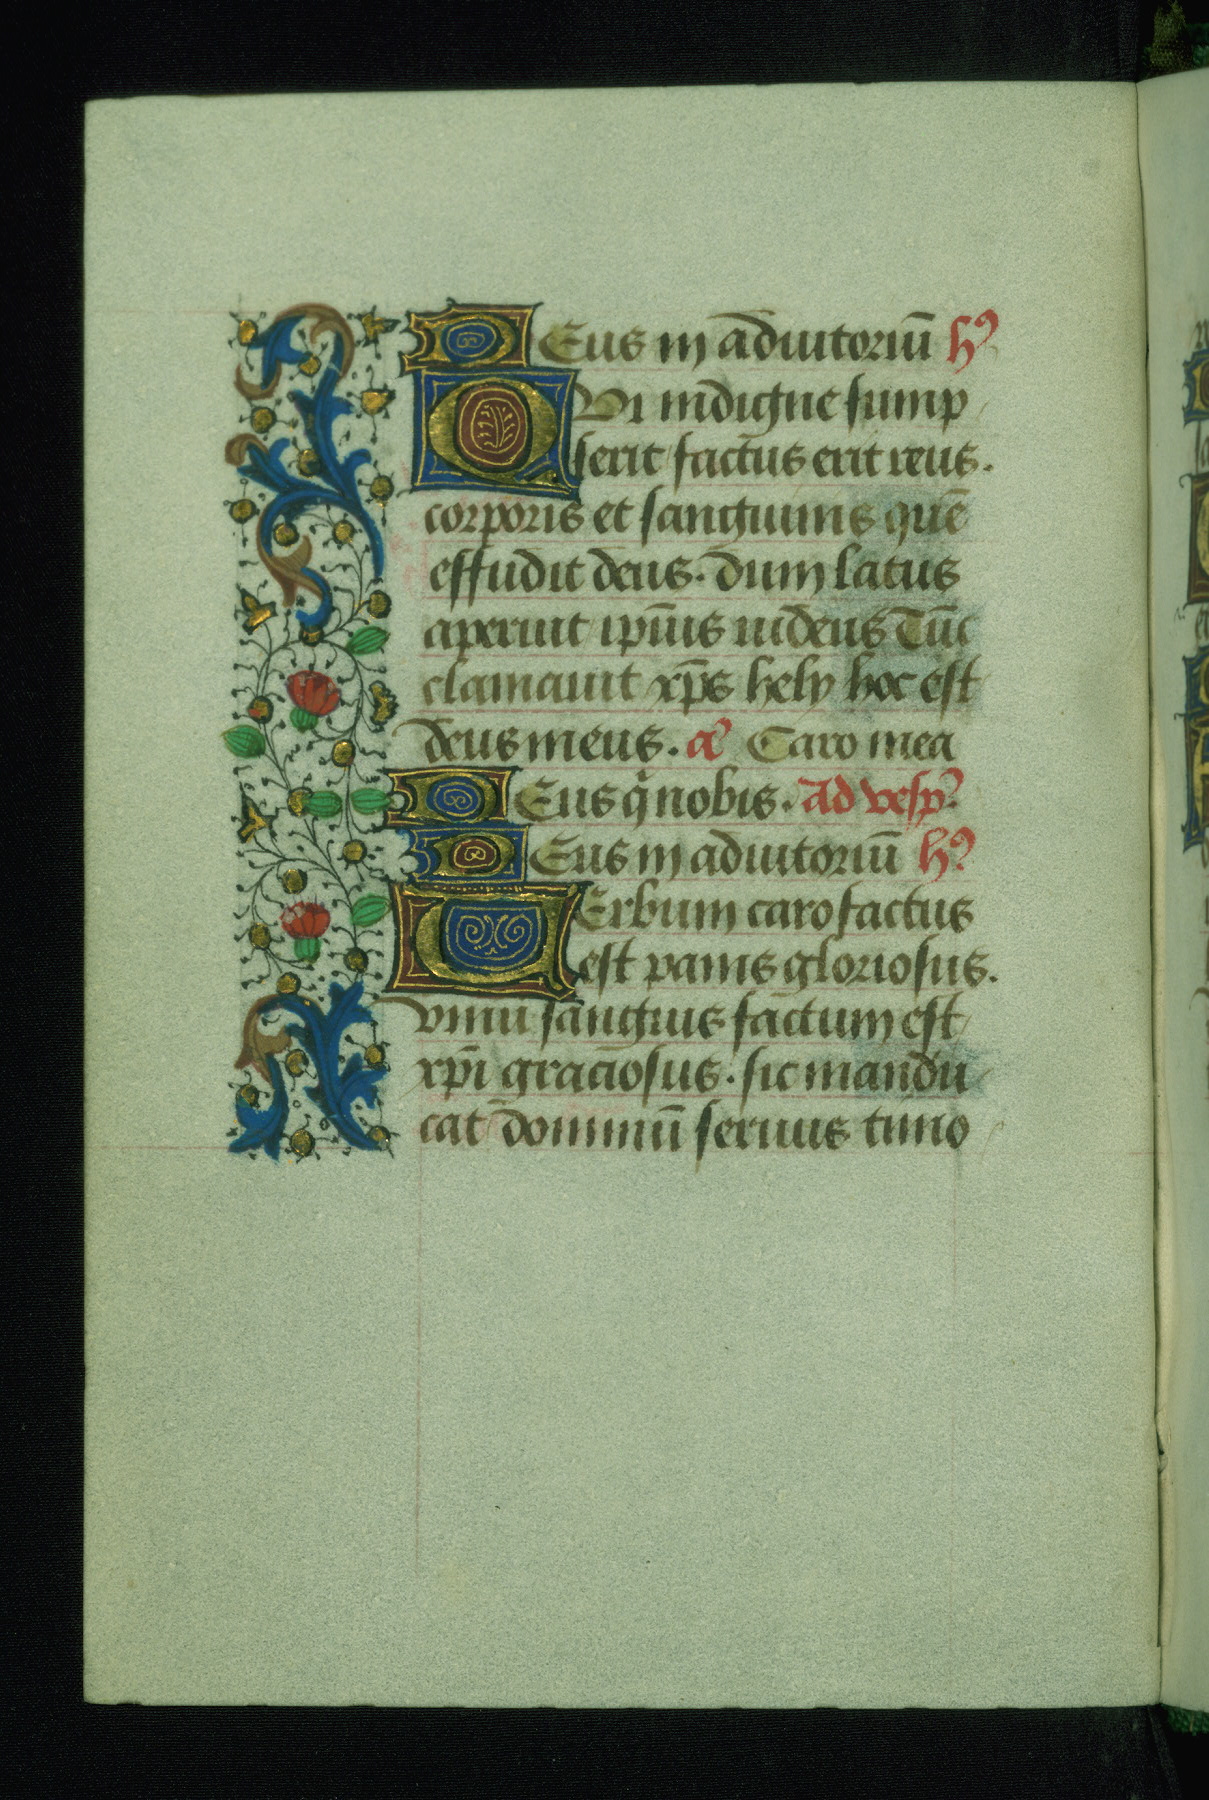 Deus in adiutoriū hꝰ
Qui indigne sump
serit factus erit reus.
corporis et sanguinis quē
effudit deus. dum latus
aperiut ipīus uidens Tūc
clamauit xp̄s hely hoc est
deus meus. aͬ Caro mea
Deus q̄ nobis. Ad vesp̄
Deus in adiutoriū hꝰ
Verbum caro factus
est panis gloriosus.
vinū sanguis factum est
xp̄i graciosus. sic mandu
cat dominū seruus tuno